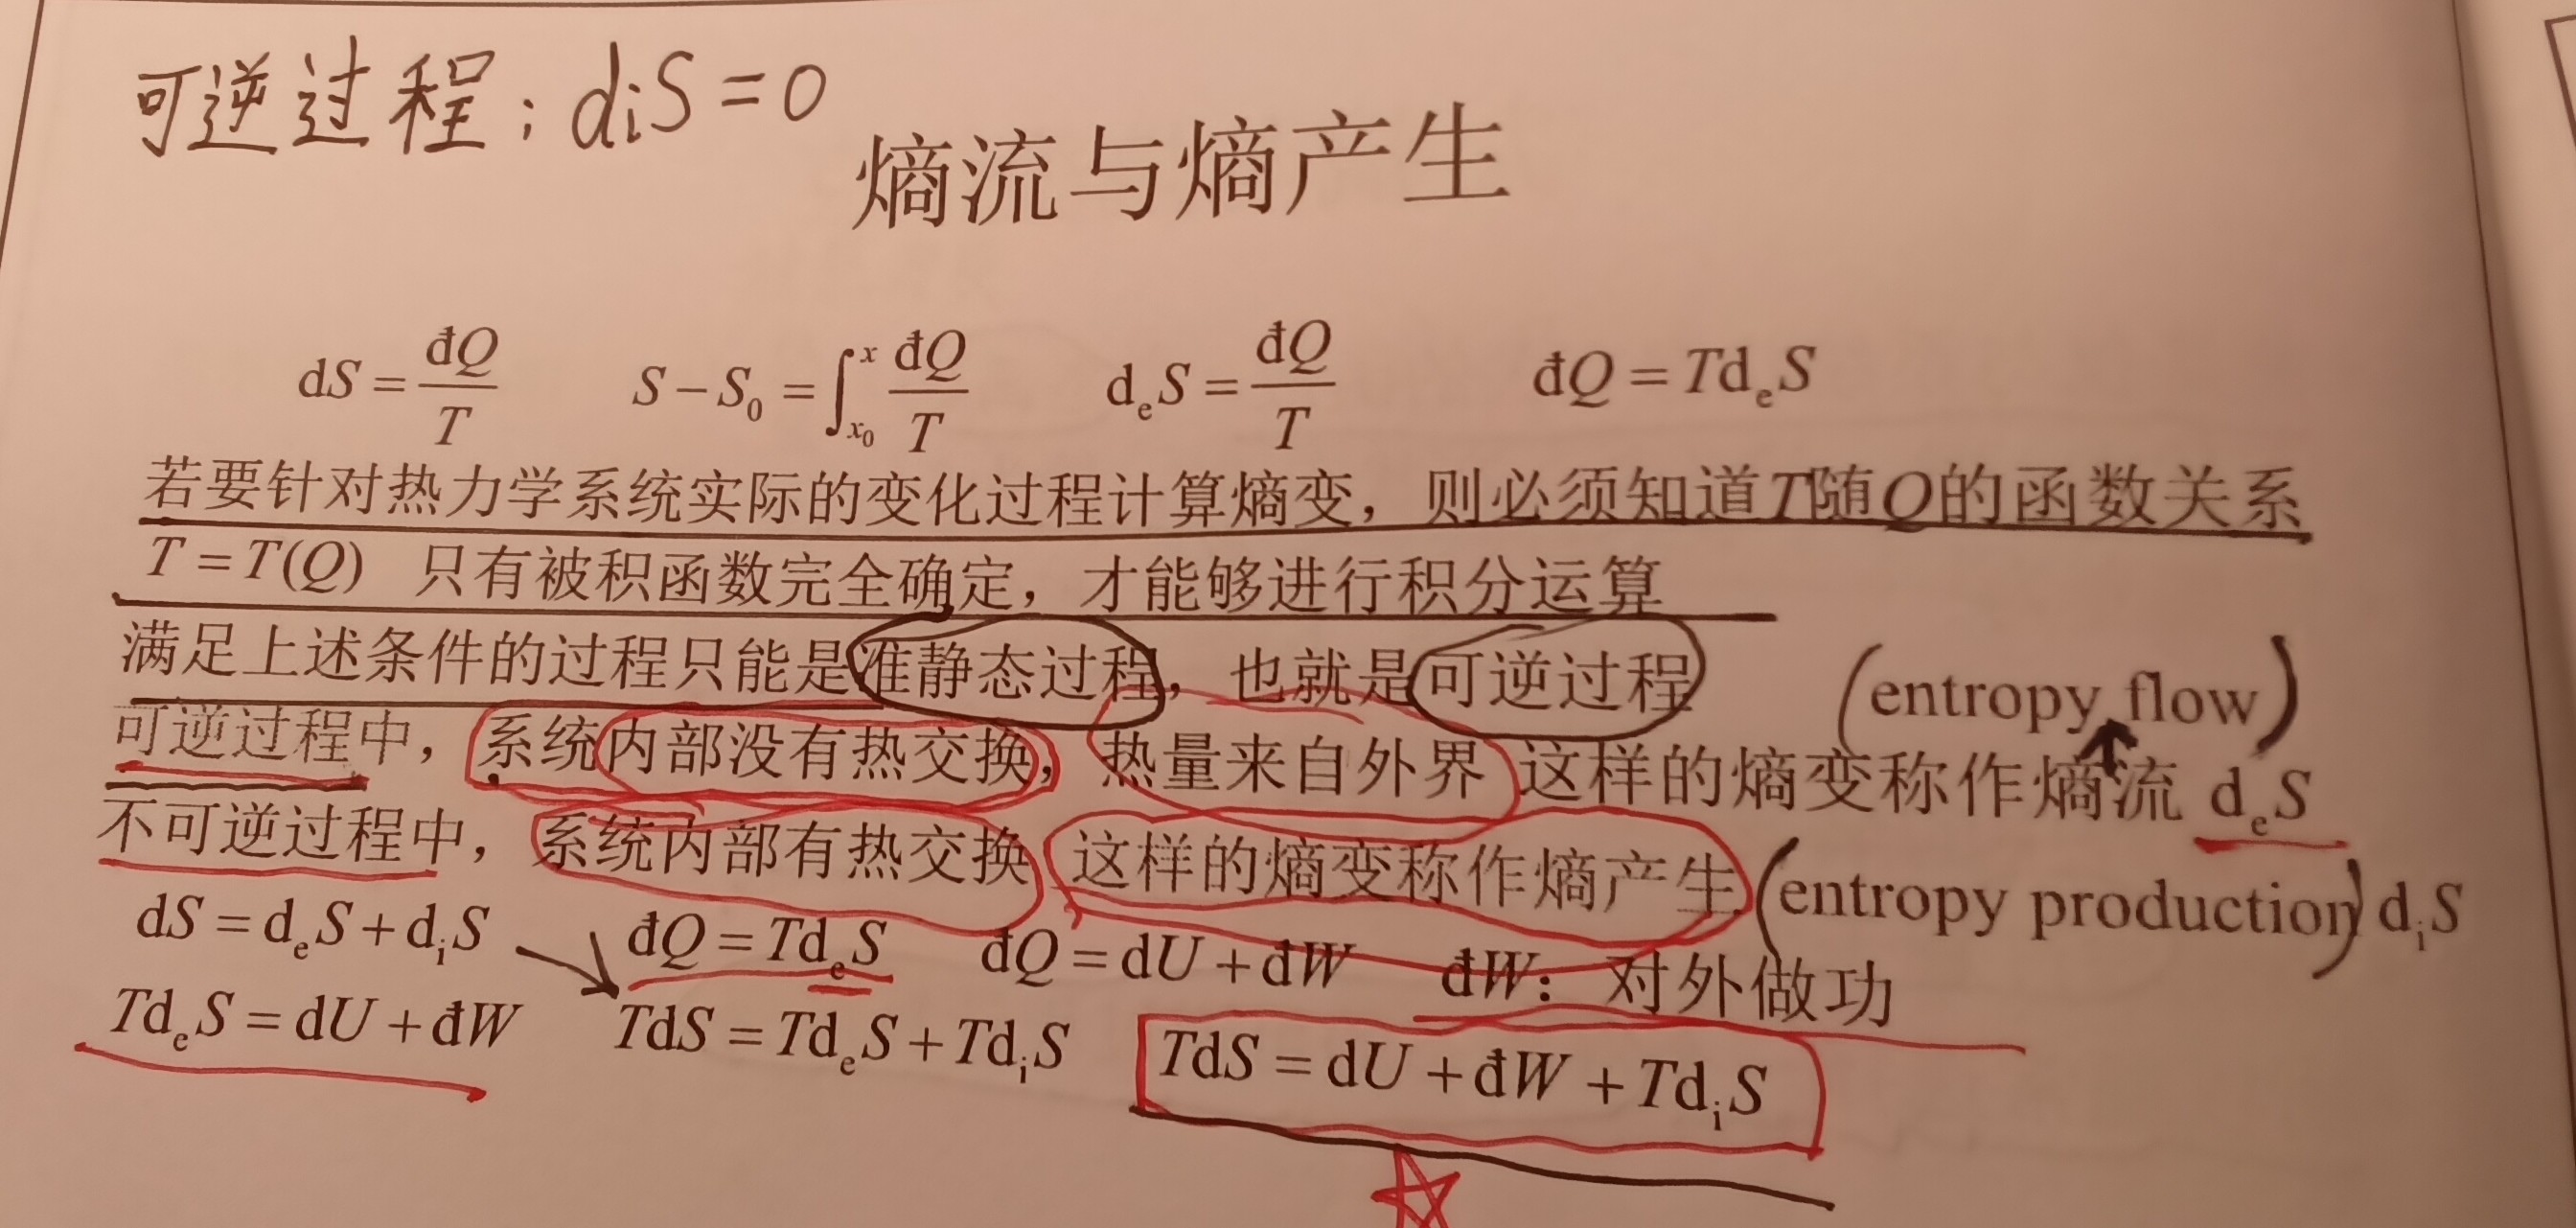 可逆过程：diS=0
熵流与熵产生
dS = đQ/T    S − S₀ = ∫ₓ₀ˣ đQ/T    dₑS = đQ/T    đQ = TdₑS
若要针对热力学系统实际的变化过程计算熵变，则必须知道T随Q的函数关系
T = T(Q) 只有被积函数完全确定，才能够进行积分运算
满足上述条件的过程只能是准静态过程，也就是可逆过程 (entropy flow)
可逆过程中，系统内部没有热交换，热量来自外界 这样的熵变称作熵流 dₑS
不可逆过程中，系统内部有热交换 这样的熵变称作熵产生(entropy production) dᵢS
dS = dₑS + dᵢS    đQ = TdₑS    đQ = dU + đW    đW：对外做功
TdₑS = dU + đW    TdS = TdₑS + TdᵢS    TdS = dU + đW + TdᵢS